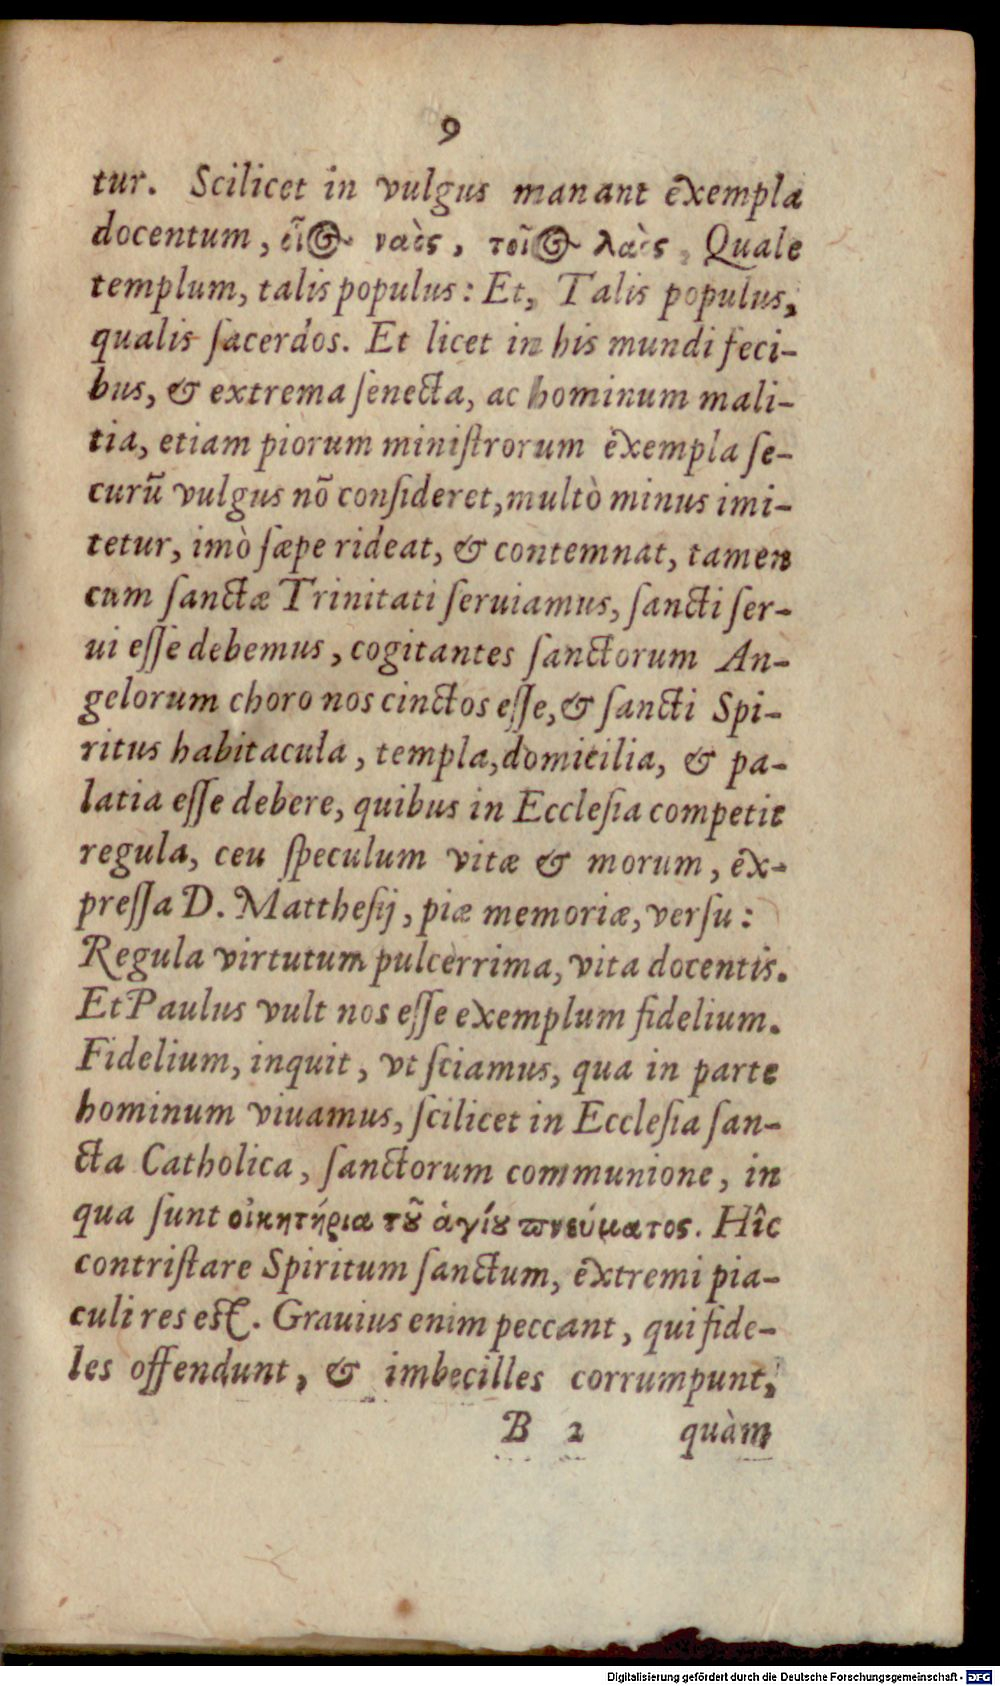 9
tur. Scilicet in vulgus manant exempla
docentum, οἷος ναὸς, τοῖος λαὸς, Quale
templum, talis populus: Et, Talis populus,
qualis ſacerdos. Et licet in his mundi feci-
bus, & extrema ſenecta, ac hominum mali-
tia, etiam piorum miniſtrorum exempla ſe-
curũ vulgus nõ conſideret, multò minus imi-
tetur, imò ſæpe rideat, & contemnat, tamen
cum ſanctæ Trinitati ſeruiamus, ſancti ſer-
ui eſſe debemus, cogitantes ſanctorum An-
gelorum choro nos cinctos eſſe, & ſancti Spi-
ritus habitacula, templa, domicilia, & pa-
latia eſſe debere, quibus in Eccleſia competit
regula, ceu ſpeculum vitæ & morum, ex-
preſſa D. Mattheſij, piæ memoriæ, verſu:
Regula virtutum pulcerrima, vita docentis.
Et Paulus vult nos eſſe exemplum fidelium.
Fidelium, inquit, vt ſciamus, qua in parte
hominum viuamus, ſcilicet in Eccleſia ſan-
cta Catholica, ſanctorum communione, in
qua ſunt οἰκητήρια τȣ͂ ἁγίȣ ϖνεύματος. Hîc
contriſtare Spiritum ſanctum, extremi pia-
culi res eſt. Grauius enim peccant, qui fide-
les offendunt, & imbecilles corrumpunt,
B 2 quàm
Digitalisierung gefördert durch die Deutsche Forschungsgemeinschaft - DFG